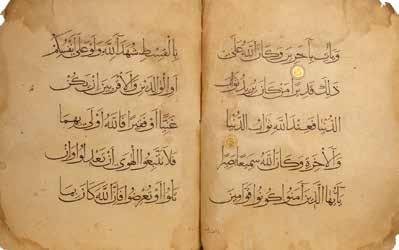 وَيَأْتِ بِآخَرِينَ وَكَانَ اللَّهُ عَلَىٰ
ذَٰلِكَ قَدِيرًا مَنْ كَانَ يُرِيدُ ثَوَابَ
الدُّنْيَا فَعِنْدَ اللَّهِ ثَوَابُ الدُّنْيَا
وَالْآخِرَةِ وَكَانَ اللَّهُ سَمِيعًا بَصِيرًا
يَا أَيُّهَا الَّذِينَ آمَنُوا كُونُوا قَوَّامِينَ
بِالْقِسْطِ شُهَدَاءَ لِلَّهِ وَلَوْ عَلَىٰ أَنْفُسِكُمْ
أَوِ الْوَالِدَيْنِ وَالْأَقْرَبِينَ إِنْ يَكُنْ
غَنِيًّا أَوْ فَقِيرًا فَاللَّهُ أَوْلَىٰ بِهِمَا
فَلَا تَتَّبِعُوا الْهَوَىٰ أَنْ تَعْدِلُوا وَإِنْ
تَلْوُوا أَوْ تُعْرِضُوا فَإِنَّ اللَّهَ كَانَ بِمَا